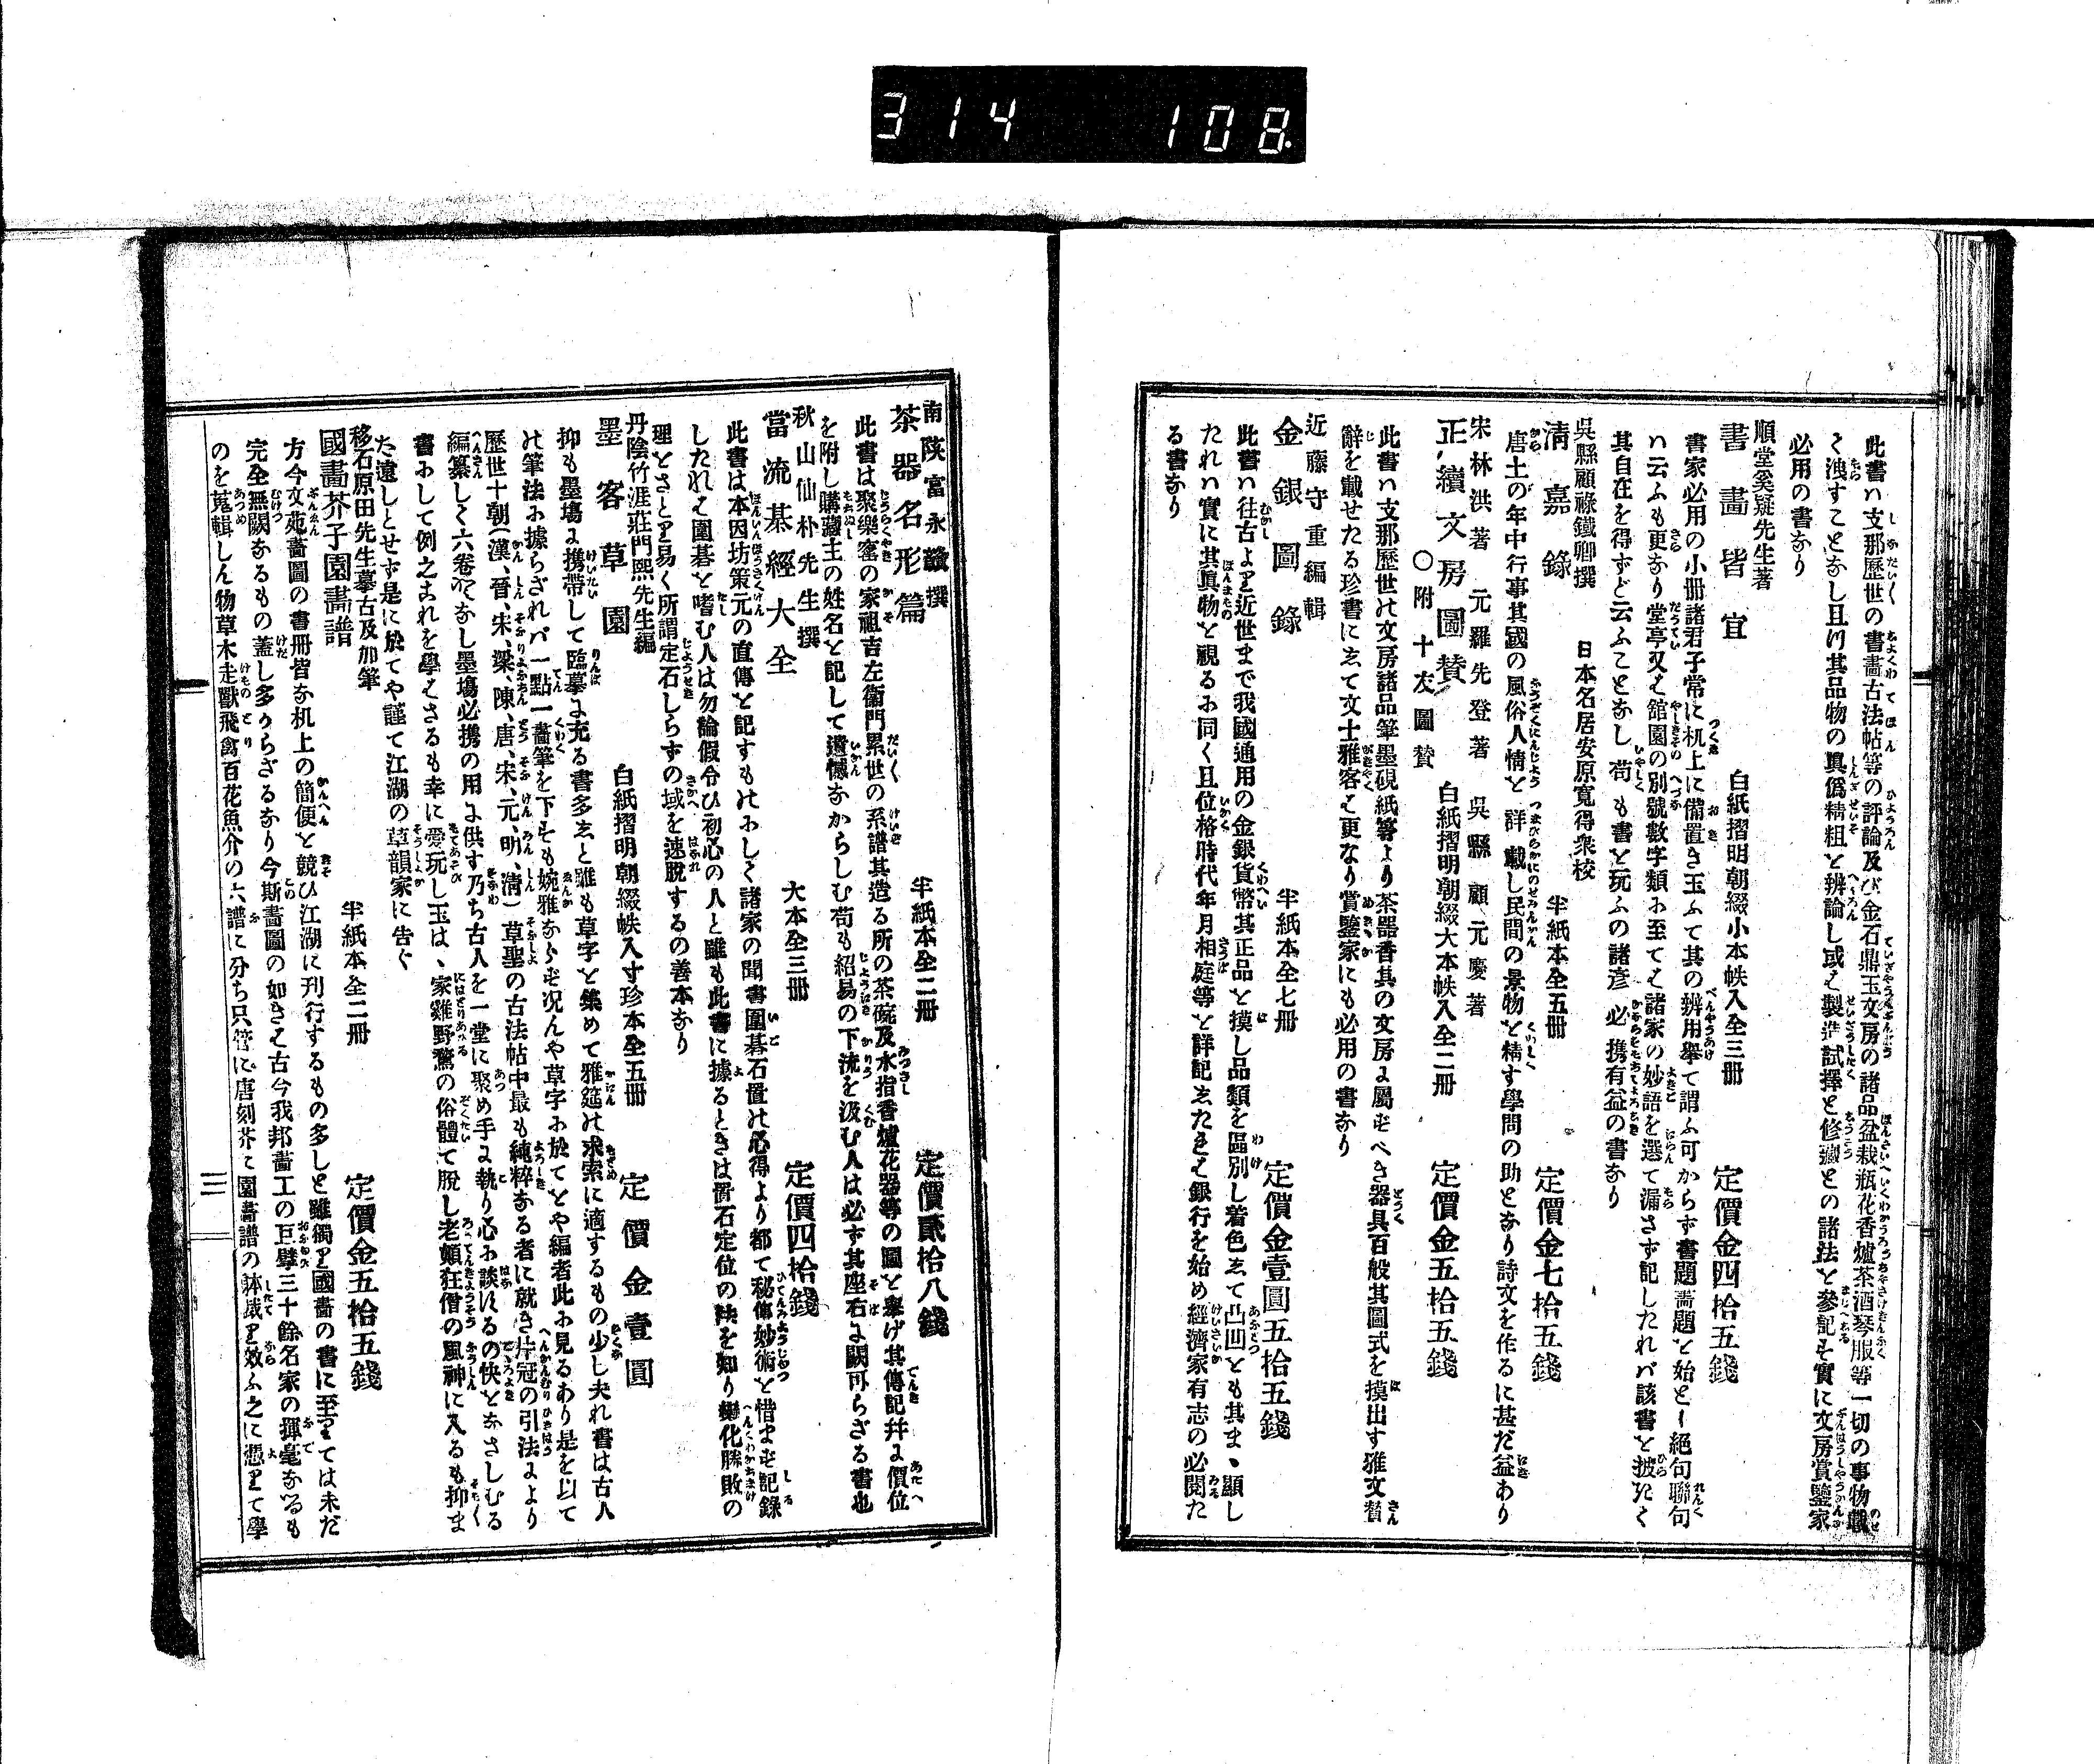 314 108
此書ハ支那歴世の書畫古法帖等の評論及び金石鼎玉文房の諸品盆栽瓶花香爐茶酒琴服等一切の事物載
く洩すことなし且つ其品物の眞僞精粗を辨論し或ハ製造試擇と修藏との諸法と參記そ實に文房賞鑒家
必用の書なり
順堂癸疑先生著
書畫皆宜 白紙摺明朝綴小本帙入全三册 定價金四拾五錢
書家必用の小册諸君子常に机上に備置き玉ふて其の辨用擧て謂ふ可からず書題畵題を始と一絶句聯句
ハ云ふも更なり堂亭又ハ舘園の別號數字類に至てハ諸家の妙語を選て漏さず記したれバ該書を披たく
其自在を得ずと云ふことなし苟も書を玩ふの諸彦必携有益の書なり
呉縣顧祿鐵卿撰 日本名居安原寛得衆校
淸嘉錄 半紙本全五册 定價金七拾五錢
唐土の年中行事其國の風俗人情を詳載し民間の景物を精す學問の助となり詩文を作るに甚だ益あり
宋林洪著 元羅先登著 呉縣顧元慶著
正續文房圖賛 白紙摺明朝綴大本帙入全二册 定價金五拾五錢
○附十友圖賛
此書ハ支那歴世の文房諸品筆墨硯紙等より茶器香其の文房に屬すべき器具百般其圖式を摸出す雅文賛
辭を載せたる珍書にして文士雅客ハ更なり賞鑒家にも必用の書なり
近藤守重編輯
金銀圖錄 半紙本全七册 定價金壹圓五拾五錢
此書ハ往古より近世まで我國通用の金銀貨幣其正品を摸し品類を區別し着色して凸凹とも其まゝ顯し
たれハ實に其眞物を視るに同く且位格時代年月相庭等を詳記したれハ銀行を始め經濟家有志の必閲た
る書なり
南陔富永撰
茶器名形篇 半紙本全二册 定價貳拾八錢
此書は聚樂窰の家祖吉左衞門累世の系譜其造る所の茶碗及水指香爐花器等の圖を擧げ其傳記幷に價位
を附し購藏主の姓名を記して遺憾なからしむ苟も紹易の下流を汲む人は必ず其座右に闕可らざる書也
秋山仙朴先生撰
當流碁經大全 大本全三册 定價四拾錢
此書は本因坊策元の直傳を記すものにして諸家の聞書圍碁石置の心得より都て秘傳妙術を惜まず記錄
したれハ圍碁を嗜む人は勿論假令ひ初心の人と雖も此書に據るときは畨石定位の訣を知り變化勝敗の
理をさとり易く所謂定石しらずの域を速脱するの善本なり
丹陰竹涯莊門熙先生編
墨客草園 白紙摺明朝綴帙入寸珍本全五册 定價金壹圓
抑も墨塲に携帶して臨摹に充る書多しと雖も草字を集めて雅筵の求索に適するもの少し夫れ書は古人
の筆法に據らざれバ一點一畵筆を下すも婉雅ならず况んや草字に於てをや編者此に見るあり是を以て
歴世十朝(漢、晉、宋、梁、陳、唐、宋、元、明、淸)草聖の古法帖中最も純粹なる者に就き偏冠の引法により
編纂して六卷となし墨塲必携の用に供す乃ち古人を一堂に聚め手に執り心に談ずるの快をなさしむる
書にして例之これを學ハざるも幸に愛玩し玉は、家雞野鶩の俗體て脱し老顚狂僧の風神に入るも抑ま
た遠しとせず是に於てや謹て江湖の草韻家に告ぐ
移石原田先生摹古及加筆
國畫芥子園畵譜 半紙本全二册 定價金五拾五錢
方今文苑畵圖の書册皆な机上の簡便を競ひ江湖に刊行するもの多しと雖獨り國畵の書に至ては未だ
完全無闕なるもの蓋し多からざるなり今斯畵圖の如きハ古今我邦畵工の巨擘三十餘名家の揮毫なるも
のを蒐輯しん物草木走獸飛禽百花魚介の六譜に分ち只管に唐刻芥子園畵譜の躰裁に效ふ之に憑りて學
三